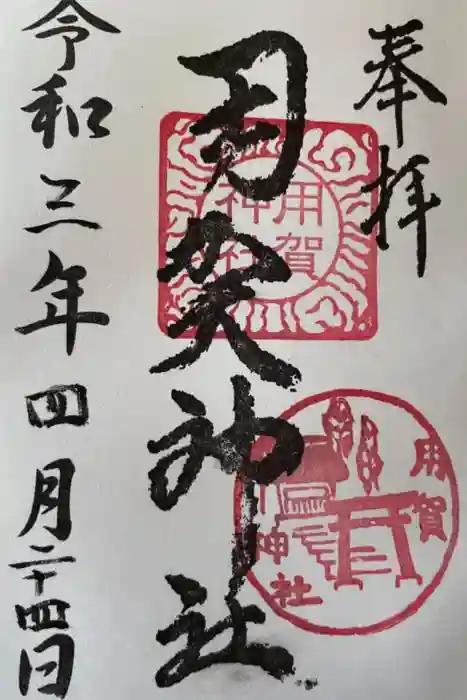 奉拝
用賀神社
令和三年四月二十四日
用賀
神社
用賀
神社